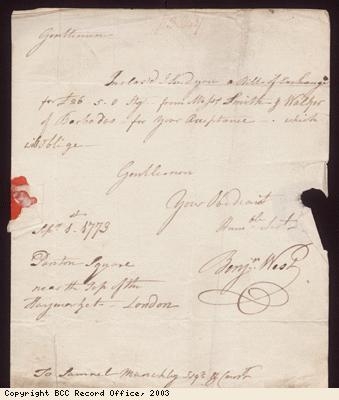 Gentlemen
Inclos'd I send you a Bill of Exchange
for £26 5.0 Stg. from Messrs Smith & Walker
of Barbados - for your Acceptance - which
will Oblige -
Gentlemen
Your Obedient
Humble Servt
Sepr 1st 1773
Benjn West
Panton Square
near the Top of the
Haymarket - London
To Samuel Munckley Esqr & Comp
Copyright BCC Record Office, 2003